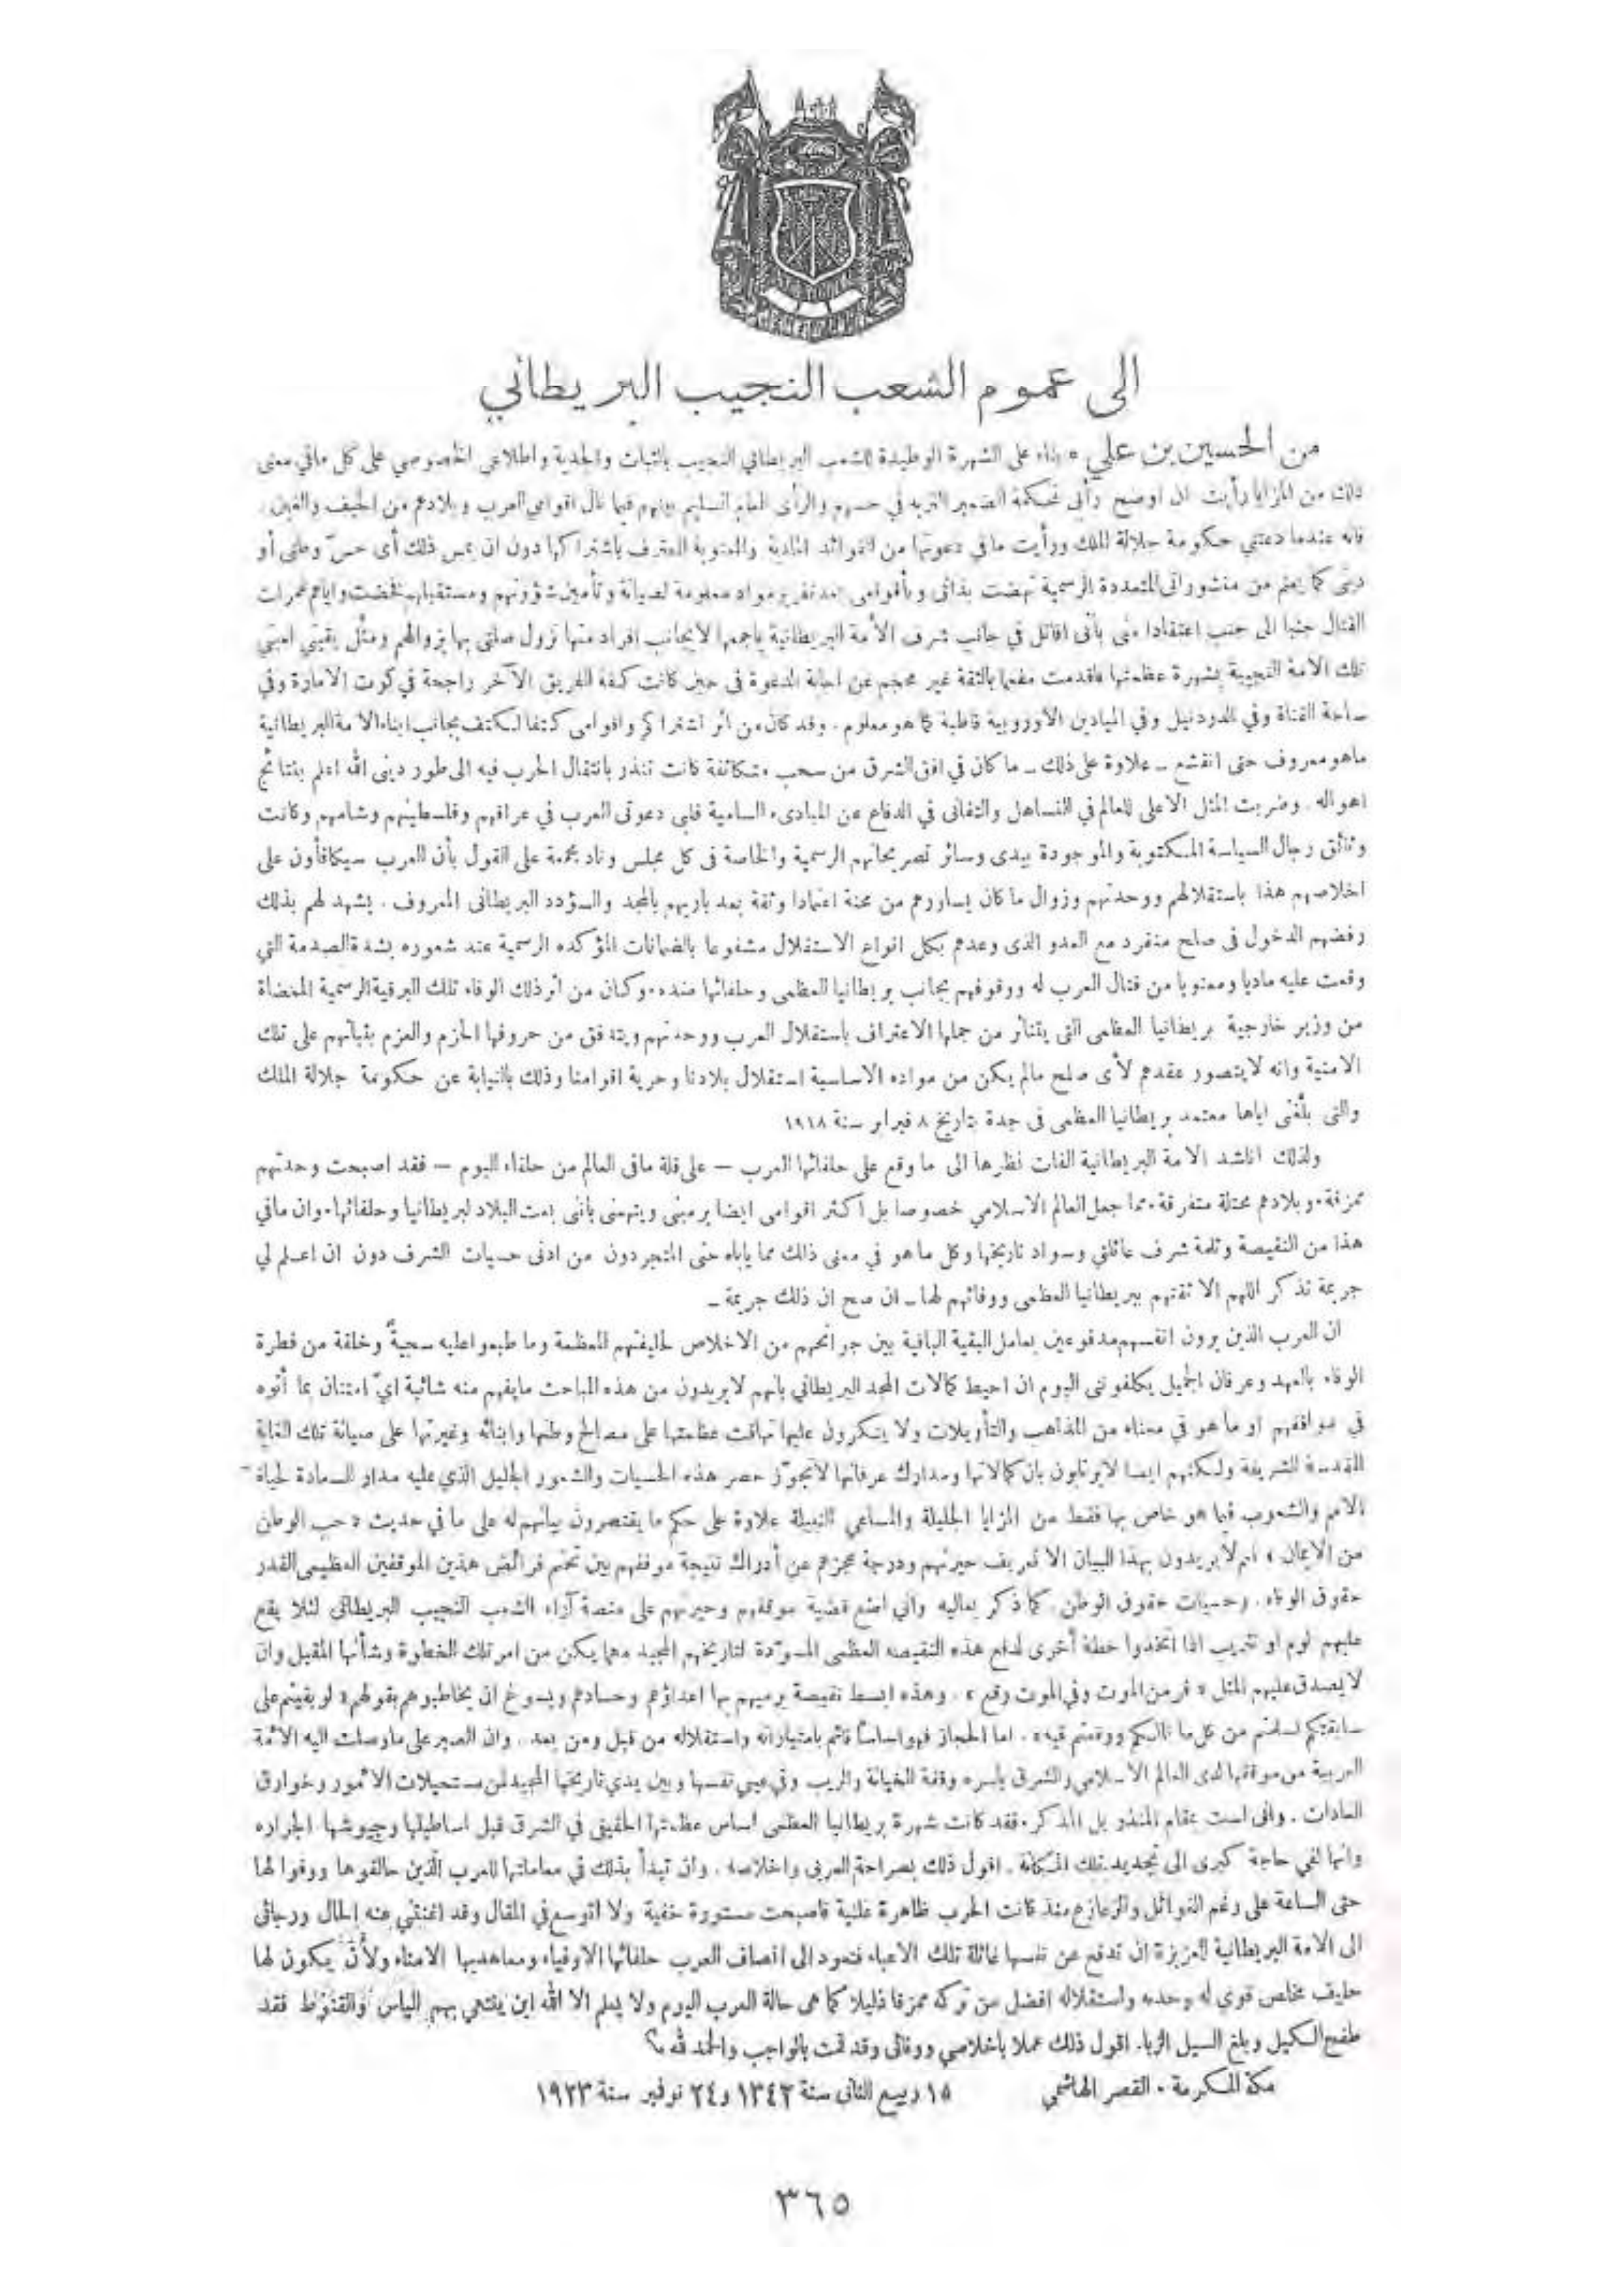 الى عموم الشعب النجيب البريطاني
من الحسين بن علي » بناء على الشهرة الوطيدة للشعب البريطاني النجيب بالثبات والجدية واطلاعي الخصوصي على كل مافي معنى
ذلك من المزايا رأيت ان اوضح رأيي لمحكمة الضمير النزيه في حسهم والرأى العام السليم بينهم فيما نال اقوامي العرب وبلادهم من الحيف والغبن.
فانه عندما دعتني حكومة جلالة الملك ورأيت مافي دعوتها من الفوائد المادية والمعنوية المعترف باشتراكها دون ان يمس ذلك أى حسّ وطنى أو
دينى كما يعلم من منشوراتى المتعددة الرسمية نهضت بذاتى وبأقوامى بعد تقرير مواد معلومة لصيانة وتأمين شؤونهم ومستقبلهم فخضت واياهم غمرات
القتال جنبا الى جنب اعتقادا منى بأنى اقاتل في جانب شرف الأمة البريطانية باجمعها لابجانب افراد منها تزول صلتى بها بزوالهم ومثّل يقينى امنتى
تلك الامة النجيبة بشهرة عظمتها فاقدمت مفعما بالثقة غير محجم عن اجابة الدعوة فى حين كانت كفة الفريق الآخر راجحة في كوت الامارة وفي
ساحة القناة وفي الدردنيل وفي الميادين الاوروبية قاطبة كما هو معلوم. وقد كان من اثر اشتراكي واقوامى كتفا لكتف بجانب ابناء الامة البريطانية
ماهو معروف حتى انقشع ــ علاوة على ذلك ــ ما كان في افق الشرق من سحب متكاثفة كانت تنذر بانتقال الحرب فيه الى طور دينى الله اعلم بنتائج
اهواله. وضربت المثل الاعلى للعالم في التساهل والتفانى في الدفاع عن المبادىء السامية فلبى دعوتى العرب في عراقهم وفلسطينهم وشامهم وكانت
وثائق رجال السياسة المكتوبة والموجودة بيدى وسائر تصريحاتهم الرسمية والخاصة فى كل مجلس وناد مجمعة على القول بأن العرب سيكافأون على
اخلاصهم هذا باستقلالهم ووحدتهم وزوال ما كان يساورهم من محنة اعتمادا وثقة بعد باريهم بالمجد والسؤدد البريطانى المعروف. يشهد لهم بذلك
رفضهم الدخول فى صلح منفرد مع العدو الذى وعدهم بكل انواع الاستقلال مشفوعا بالضمانات المؤكده الرسمية عند شعوره بشدة الصدمة التي
وقعت عليه ماديا ومعنويا من قتال العرب له ووقوفهم بجانب بريطانيا العظمى وحلفائها ضده. وكان من اثر ذلك الوفاء تلك البرقية الرسمية الممضاة
من وزير خارجية بريطانيا العظمى التى يتناثر من جملها الاعتراف باستقلال العرب ووحدتهم ويتدفق من حروفها الحزم والعزم بثباتهم على تلك
الامنية وانه لايتصور عقدهم لأى صلح مالم يكن من مواده الاساسية استقلال بلادنا وحرية اقوامنا وذلك بالنيابة عن حكومة جلالة الملك
والتى بلّغنى اياها معتمد بريطانيا العظمى فى جدة بتاريخ ٨ فبراير سنة ١٩١٨
ولذلك اناشد الامة البريطانية الفات نظرها الى ما وقع على حلفائها العرب — على قلة مافى العالم من حلفاء اليوم — فقد اصبحت وحدتهم
ممزقة. وبلادهم محتلة متفرقة. مما جعل العالم الاسلامي خصوصا بل اكثر اقوامى ايضا يرمينى ويتهمنى بأننى بعت البلاد لبريطانيا وحلفائها. وان مافي
هذا من النقيصة وثلمة شرف عائلتي وسواد تاريخها وكل ما هو في معنى ذلك مما ياباه حتى المتجردون من ادنى حسيات الشرف دون ان اعلم لي
جريمة تذكر اللهم الا ثقتهم ببريطانيا العظمى ووفائهم لها ــ ان صح ان ذلك جريمة ــ
ان العرب الذين يرون انفسهم مدفوعين بعامل البقية الباقية بين جوانحهم من الاخلاص لحليفتهم المعظمة وما طبعوا عليه سجيةً وخلقة من فطرة
الوفاء بالعهد وعرفان الجميل يكلفوننى اليوم ان احيط كمالات المجد البريطاني بأنهم لايريدون من هذه المباحث مايفهم منه شائبة ايّ امتنان بما أتوه
في مواقفهم او ما هو في معناه من المذاهب والتأويلات ولا ينكرون عليها تهافت عظمتها على مصالح وطنها وابنائه وغيرتها على صيانة تلك الغاية
المقدسة الشريفة ولكنهم ايضا لايرتابون بان كمالاتها ومدارك عرفانها لاتجوّز حصر هذه الحسيات والشعور الجليل الذي عليه مدار السعادة لحياة
الامم والشعوب فيما هو خاص بها فقط من المزايا الجليلة والمساعي النبيلة علاوة على حكم ما يقتصرون ببيانهم له على ما في حديث « حب الوطن
من الايمان » انهم لايريدون بهذا البيان الا تعريف حيرتهم ودرجة عجزهم عن أدراك نتيجة موقفهم بين تحتم فرائض هذين الموقفين العظيمى القدر
حقوق الوفاء. وحسيات حقوق الوطن. كما ذكر بعاليه وانى اضع قضية موقفهم وحيرتهم على منصة آراء الشعب النجيب البريطانى لئلا يقع
عليهم لوم او تثريب اذا اتخذوا خطة أخرى لدفع هذه النقيصه العظمى المسوّدة لتاريخهم المجيد مهما يكن من امر تلك الخطورة وشأنها المقبل وان
لايصدق عليهم المثل « فر من الموت وفي الموت وقع ». وهذه ابسط نقيصة يرميهم بها اعداؤهم وحسادهم ويسوغ ان يخاطبوهم بقولهم « لو بقيتم على
سابقتكم لسلمتم من كل ما نالكم ووقعتم فيه ». اما الحجاز فهو اساساً قائم بامتيازاته واستقلاله من قبل ومن بعد. وان الصبر على ماوصلت اليه الامة
العربية من موقفها لدى العالم الاسلامي والشرق باسره وقفة الخيانة والريب وفي عيني نفسها وبين يدي تاريخها المجيد لمن مستحيلات الامور وخوارق
العادات. وانى لست بمقام المنذر بل المذكر. فقد كانت شهرة بريطانيا العظمى اساس عظمتها الحقيقى في الشرق قبل اساطيلها وجيوشها الجراره
وانها لفي حاجة كبرى الى تجديد تلك المكانة. اقول ذلك بصراحة العربى واخلاصه. وان تبدأ بذلك في معاملتها للعرب الذين حالفوها ووفوا لها
حتى الساعة على رغم الغوائل والزعازع منذ كانت الحرب ظاهرة علنية فاصبحت مستورة خفية ولا اتوسع في المقال وقد اغنتني عنه الحال ورجائى
الى الامة البريطانية العزيزة ان تدفع عن نفسها غائلة تلك الاعباء فتعود الى انصاف العرب حلفائها الاوفياء ومعاهديها الامناء ولأن يكون لها
حليف مخلص قوي له وحدته واستقلاله افضل من تركه ممزقا ذليلا كما هى حالة العرب اليوم ولا يعلم الا الله اين ينتهي بهم الياس والقنوط فقد
طفح الكيل وبلغ السيل الزبا. اقول ذلك عملا باخلاصي ووفائى وقد قمت بالواجب والحمد لله
مكة المكرمة. القصر الهاشمي ١٥ ربيع الثانى سنة ١٣٤٢ و٢٤ نوفمبر سنة ١٩٢٣
٣٦٥